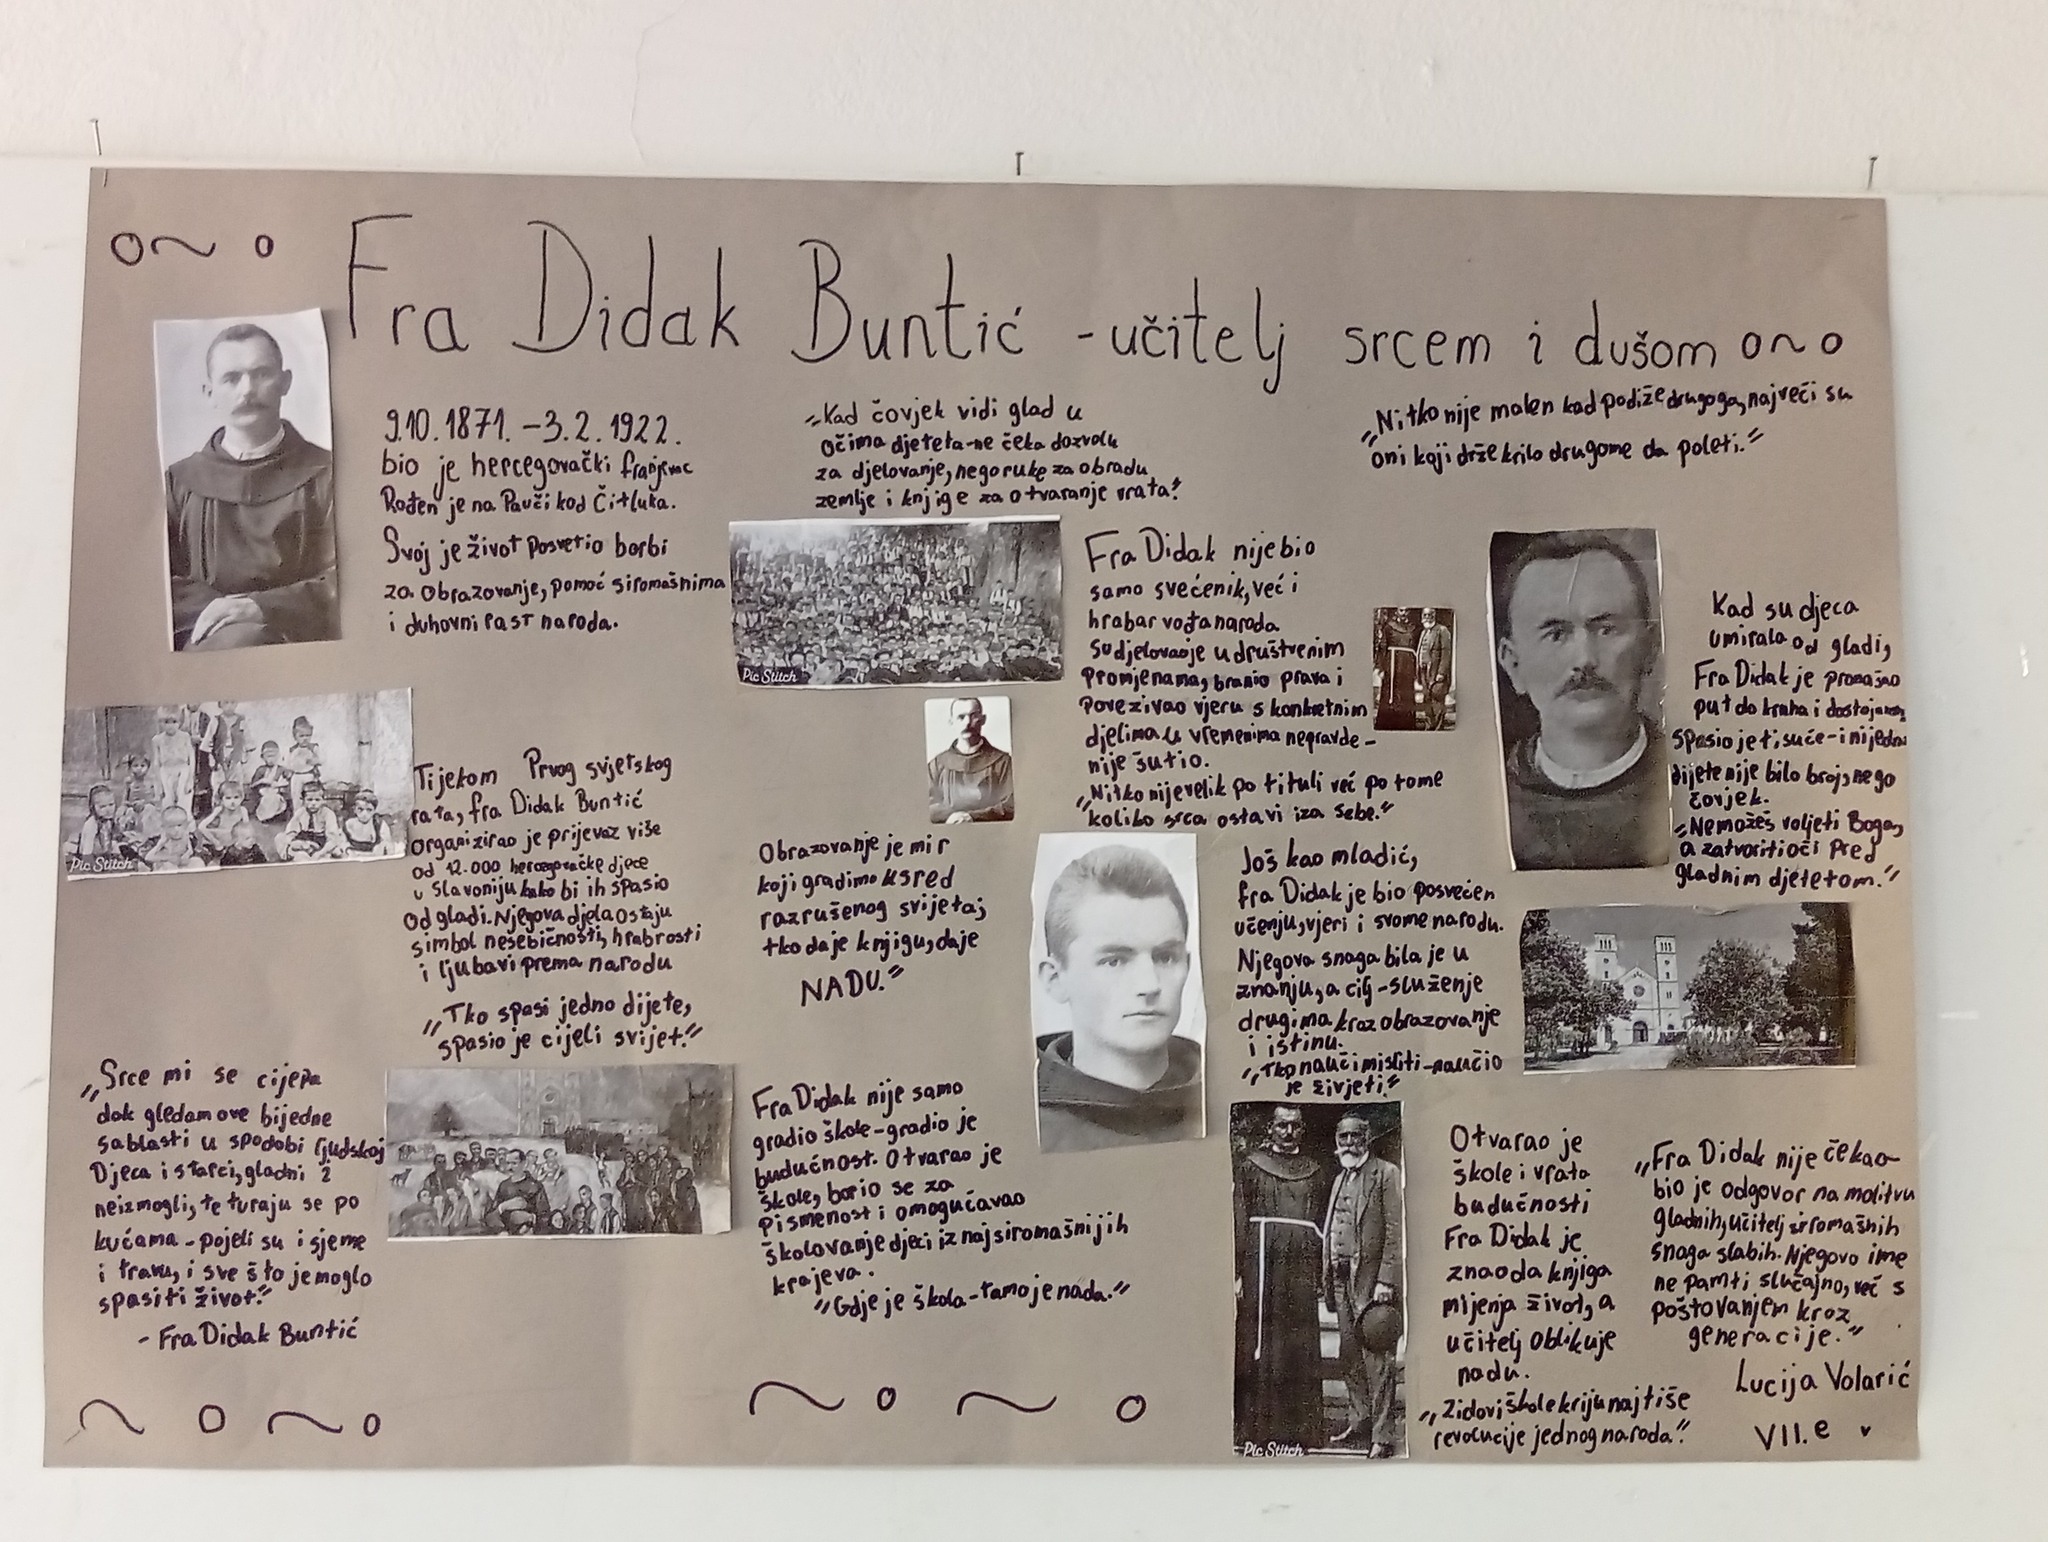 Fra Didak Buntić - učitelj srcem i dušom
9.10.1871. - 3.2.1922.
bio je hercegovački franjevac
Rođen je na Pauči kod Čitluka.
Svoj je život posvetio borbi
za obrazovanje, pomoć siromašnima
i duhovni rast naroda.
„Kad čovjek vidi glad u
očima djeteta-ne čeka dozvolu
za djelovanje, nego ruke za obradu
zemlje i knjige za otvaranje vrata."
„Nitko nije malen kad podiže drugoga, najveći su
oni koji drže krilo drugome da poleti."
Pic Stitch
Tijekom Prvog svjetskog
rata, fra Didak Buntić
organizirao je prijevoz više
od 12.000 hercegovačke djece
u Slavoniju kako bi ih spasio
od gladi. Njegova djela ostaju
simbol nesebičnosti, hrabrosti
i ljubavi prema narodu
„Tko spasi jedno dijete,
spasio je cijeli svijet."
„Srce mi se cijepa
dok gledam ove bijedne
sablasti u spodobi ljudskoj
Djeca i starci, gladni i
neizmogli, te turaju se po
kućama - pojeli su i sjeme
i travu, i sve što je moglo
spasiti život."
- Fra Didak Buntić
Pic Stitch
Obrazovanje je mir
koji gradimo usred
razrušenog svijeta;
tko daje knjigu, daje
NADU."
Fra Didak nije samo
gradio škole-gradio je
budućnost. Otvarao je
škole, borio se za
pismenost i omogućavao
školovanje djeci iz najsiromašnijih
krajeva.
„Gdje je škola-tamo je nada."
Fra Didak nije bio
samo svećenik, već i
hrabar vođa naroda
Sudjelovao je u društvenim
promjenama, branio prava i
povezivao vjeru s konkretnim
djelima u vremenima nepravde-
nije šutio.
„Nitko nije velik po tituli već po tome
koliko srca ostavi iza sebe."
Još kao mladić,
fra Didak je bio posvećen
učenju, vjeri i svome narodu.
Njegova snaga bila je u
znanju, a cilj-služenje
drugima kroz obrazovanje
i istinu.
„Tko nauči misliti-naučio
je živjeti."
Pic Stitch
Kad su djeca
umirala od gladi,
Fra Didak je pronašao
put do kruha i
spasio je tisuće-i nijedno
dijete nije bilo broj, nego
čovjek.
„Nemožeš voljeti Boga,
a zatvoriti oči pred
gladnim djetetom."
Otvarao je
škole i vrata
budućnosti
Fra Didak je
znao da knjiga
mijenja život, a
učitelj oblikuje
nadu.
„Zidovi škole kriju najtiše
revolucije jednog naroda."
„Fra Didak nije čekao-
bio je odgovor na molitvu
gladnih, učitelj siromašnih
snaga slabih. Njegovo ime
ne pamti slučajno, već s
poštovanjem kroz
generacije."
Lucija Volarić
VII.e